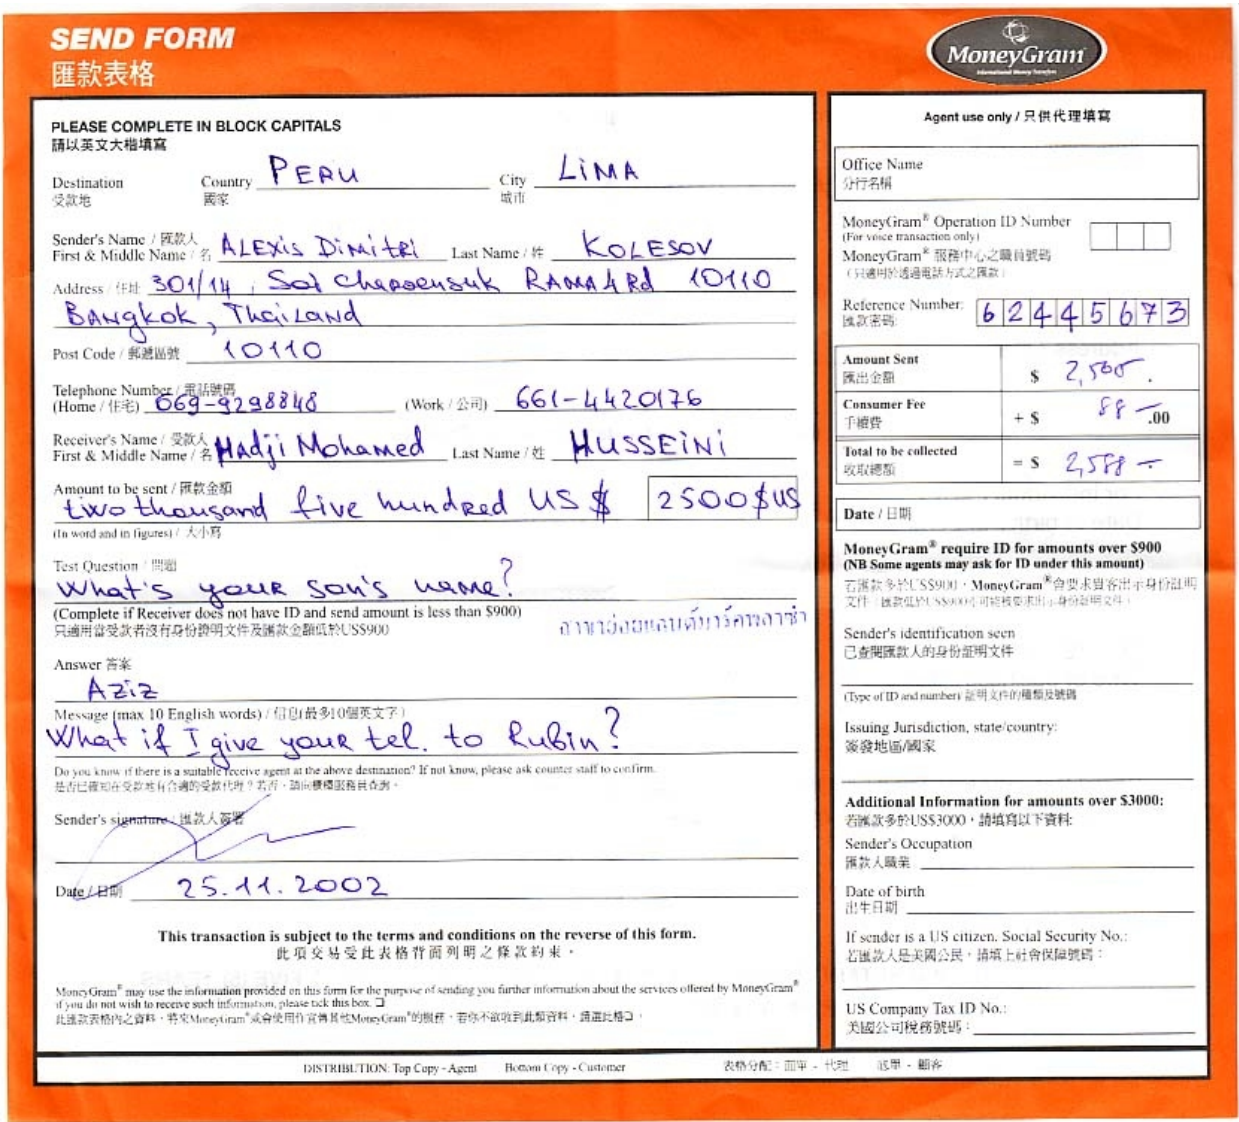 SEND FORM
匯款表格
MoneyGram
International Money Transfers
PLEASE COMPLETE IN BLOCK CAPITALS
請以英文大楷填寫
Destination Country PERU City LiMA
受款地 國家 城市
Sender's Name / 匯款人
First & Middle Name / 名 ALEXis DiMitRi Last Name / 姓 KOLESOV
Address / 住址 301/14, Soi Charoensuk RAMA 4 Rd 10110
BANgkok, ThaiLAND
Post Code / 郵遞區號 10110
Telephone Number / 電話號碼
(Home / 住宅) 069-9298848 (Work / 公司) 661-4420176
Receiver's Name / 受款人
First & Middle Name / 名 HAdji Mohamed Last Name / 姓 HUSSEiNi
Amount to be sent / 匯款金額
two thousand five hundred US $ 2500$US
(In word and in figures) / 大小寫
Test Question / 問題
What's youR son's name?
(Complete if Receiver does not have ID and send amount is less than $900)
只適用當受款者沒有身份證明文件及匯款金額低於US$900
Answer 答案
Aziz
Message (max 10 English words) / 信息(最多10個英文字)
What if I give youR tel. to Rubin?
Do you know if there is a suitable receive agent at the above destination? If not know, please ask counter staff to confirm.
是否已確知在受款地有合適的受款代理？若否，請向櫃檯服務員查詢。
Sender's signature / 匯款人簽署
Date / 日期 25.11.2002
This transaction is subject to the terms and conditions on the reverse of this form.
此項交易受此表格背面列明之條款約束。
MoneyGram® may use the information provided on this form for the purpose of sending you further information about the services offered by MoneyGram®
if you do not wish to receive such information, please tick this box. ❑
Agent use only / 只供代理填寫
Office Name
分行名稱
MoneyGram® Operation ID Number
(For voice transaction only)
MoneyGram® 服務中心之職員號碼
(只適用於透過電話方式之匯款)
Reference Number: 62445673
匯款密碼:
Amount Sent $ 2,500.
匯出金額
Consumer Fee + $ 88-.00
手續費
Total to be collected = $ 2,588-
收取總額
Date / 日期
MoneyGram® require ID for amounts over $900
(NB Some agents may ask for ID under this amount)
若匯款多於US$900，MoneyGram®會要求貴客出示身份証明
Sender's identification seen
已查閱匯款人的身份証明文件
(Type of ID and number) 証明文件的種類及號碼
Issuing Jurisdiction, state/country:
簽發地區/國家
Additional Information for amounts over $3000:
若匯款多於US$3000，請填寫以下資料:
Sender's Occupation
匯款人職業
Date of birth
出生日期
If sender is a US citizen, Social Security No.:
若匯款人是美國公民，請填上社會保障號碼：
US Company Tax ID No.:
美國公司稅務號碼：
DISTRIBUTION: Top Copy - Agent Bottom Copy - Customer 表格分配：面單 - 代理 底單 - 顧客